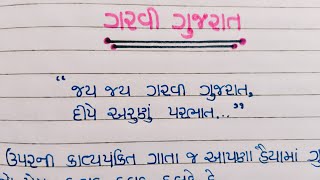 ગરવી ગુજરાત
“જય જય ગરવી ગુજરાત,
દીપે અરુણું પરભાત...”
ઉપરની કાવ્યપંક્તિ ગાતા જ આપણા હૈયામાં ગુ